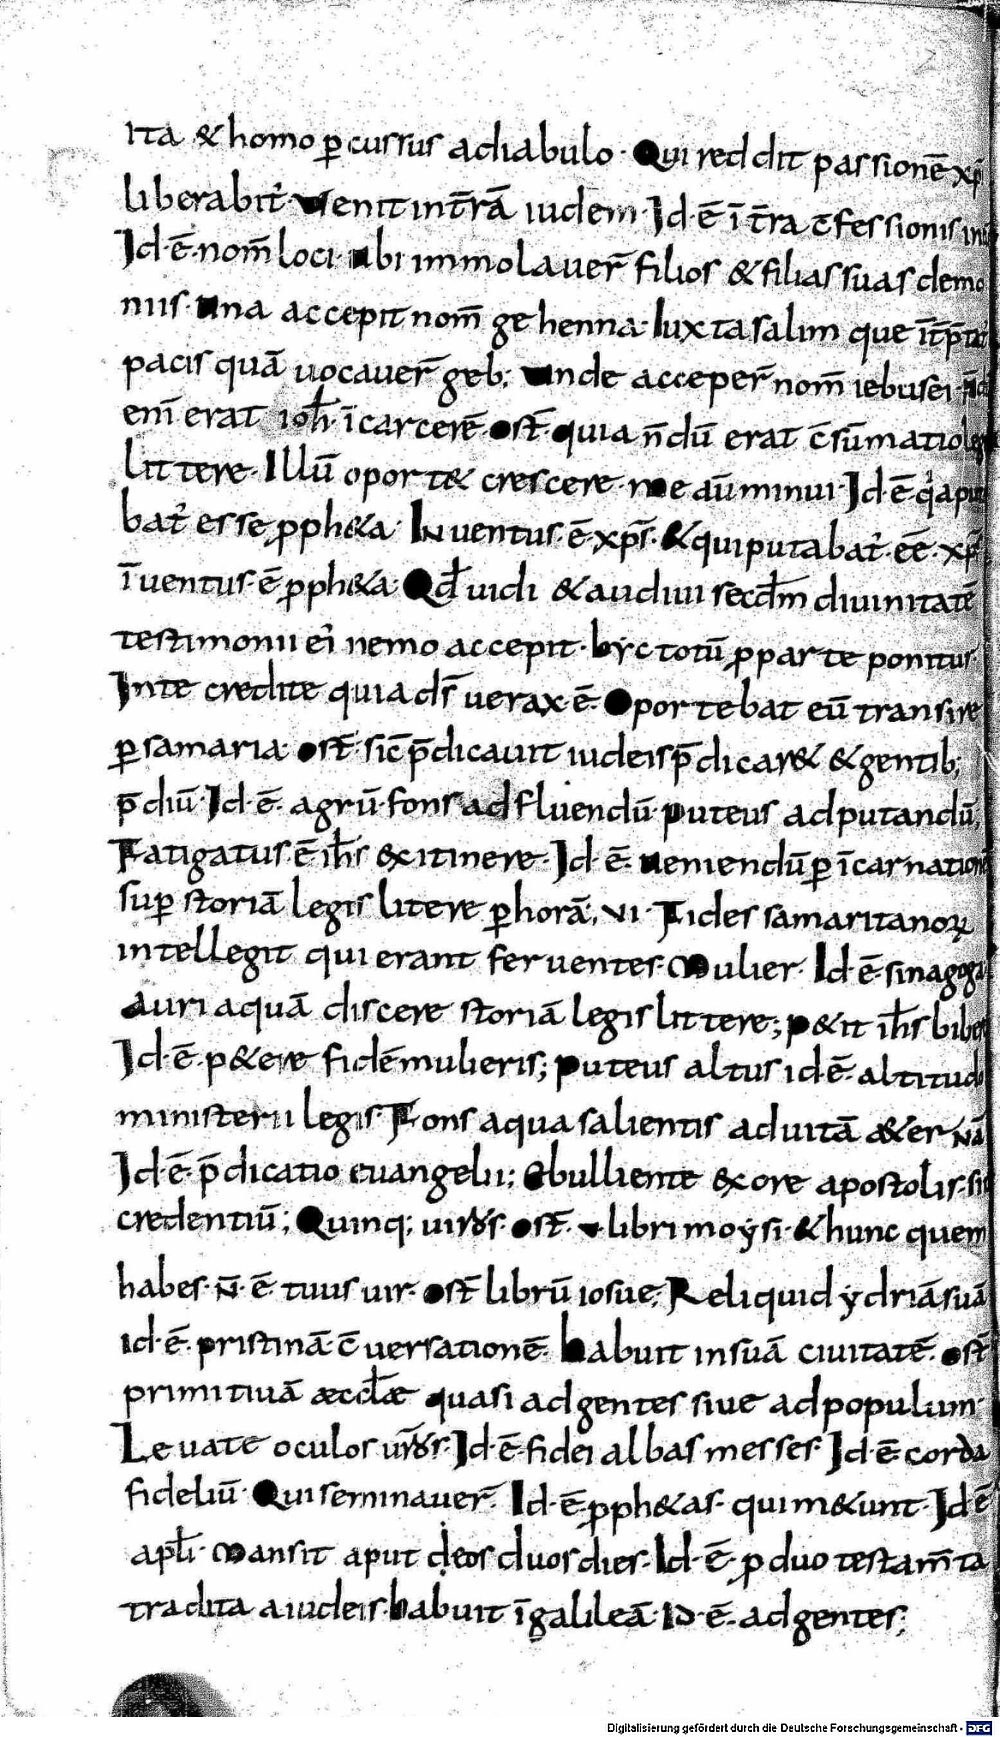 ita & homo p̱cussus adiabulo · Qui reddit passionē xp̄i
liberabit᷒ · Venit int̄rā iudem · Id · ē ī t̄ra c̄fessionis
Id · ē · nom̄ loci · ubi immolauer̄ filios & filias suas demo
niis · una accepit nom̄ gehenna · Iuxta salim que
pacis quā uocauer̄ geb; unde acceper̄ nom̄ iebusei ·
enī erat ioh̄ · ī carcerē · ost̄ · quia n̄dū erat c̄sūmatio
littere · Illū oport& crescere · me aū minui · Id · ē · q̇ aput
bat᷒ esse pph&a · Inuentus · ē · xp̄s · & qui putabat᷒ · eē · xp̄s
īuentus · ē pph&a · Qd̄ uidi & audiui secdm̄ diuinitatē
testimonii ei᷒ nemo accepit · hẏc totū p parte ponitus ·
Inte credite quia ds̄ uerax · ē · Oportebat eū transire
p̱ samaria · ost̄ · sic̄ p̄dicauit iudeis p̄dicar& & gentib;
p̄diū · Id · ē · agrū · fons ad fluendū · puteus ad putandū,
Fatigatus · ē ih̄s ex itinere · Id · ē · ueniendū p̱ īcarnationē
sup̱ storiā legis litere p̱ horā; VI · Fides samaritanoꝝ
intellegit qui erant feruentes · Mulier · Id · ē · sinagoga
auri aquā discere storiā legis littere; p&it ih̄s bibere
Id · ē · p&ere fidē mulieris; puteus altus id · ē · altitudo
ministerii legis · Fons aqua salientis ad uitā aeter nā
Id · ē · p̄dicatio euangelii; Ebulliente ex ore apostolis ·
credentiū; Quinq; uiros · ost̄ · v libri moẏsi · & hunc quem
habes · N̄ · ē · tuus uir · ost̄ librū iosue; Reliquid ẏdriā suā
id · ē · pristinā · c̄uersationē · habuit in suā ciuitatē · ost̄
primitiuā æccl̄æ quasi ad gentes siue ad populum ·
Leuate oculos uros · Id · ē · fidei albas messes · Id · ē · corda
fideliū · Qui seminauer̄ · Id · ē · pph&as · qui m&unt · Id · ē
apl̄i · Mansit aput deos duos dies · Id · ē · p duo testam̄ta
tradita a iudeis · habuit ī galileā · Id · ē · ad gentes;
Digitalisierung gefördert durch die Deutsche Forschungsgemeinschaft - DFG